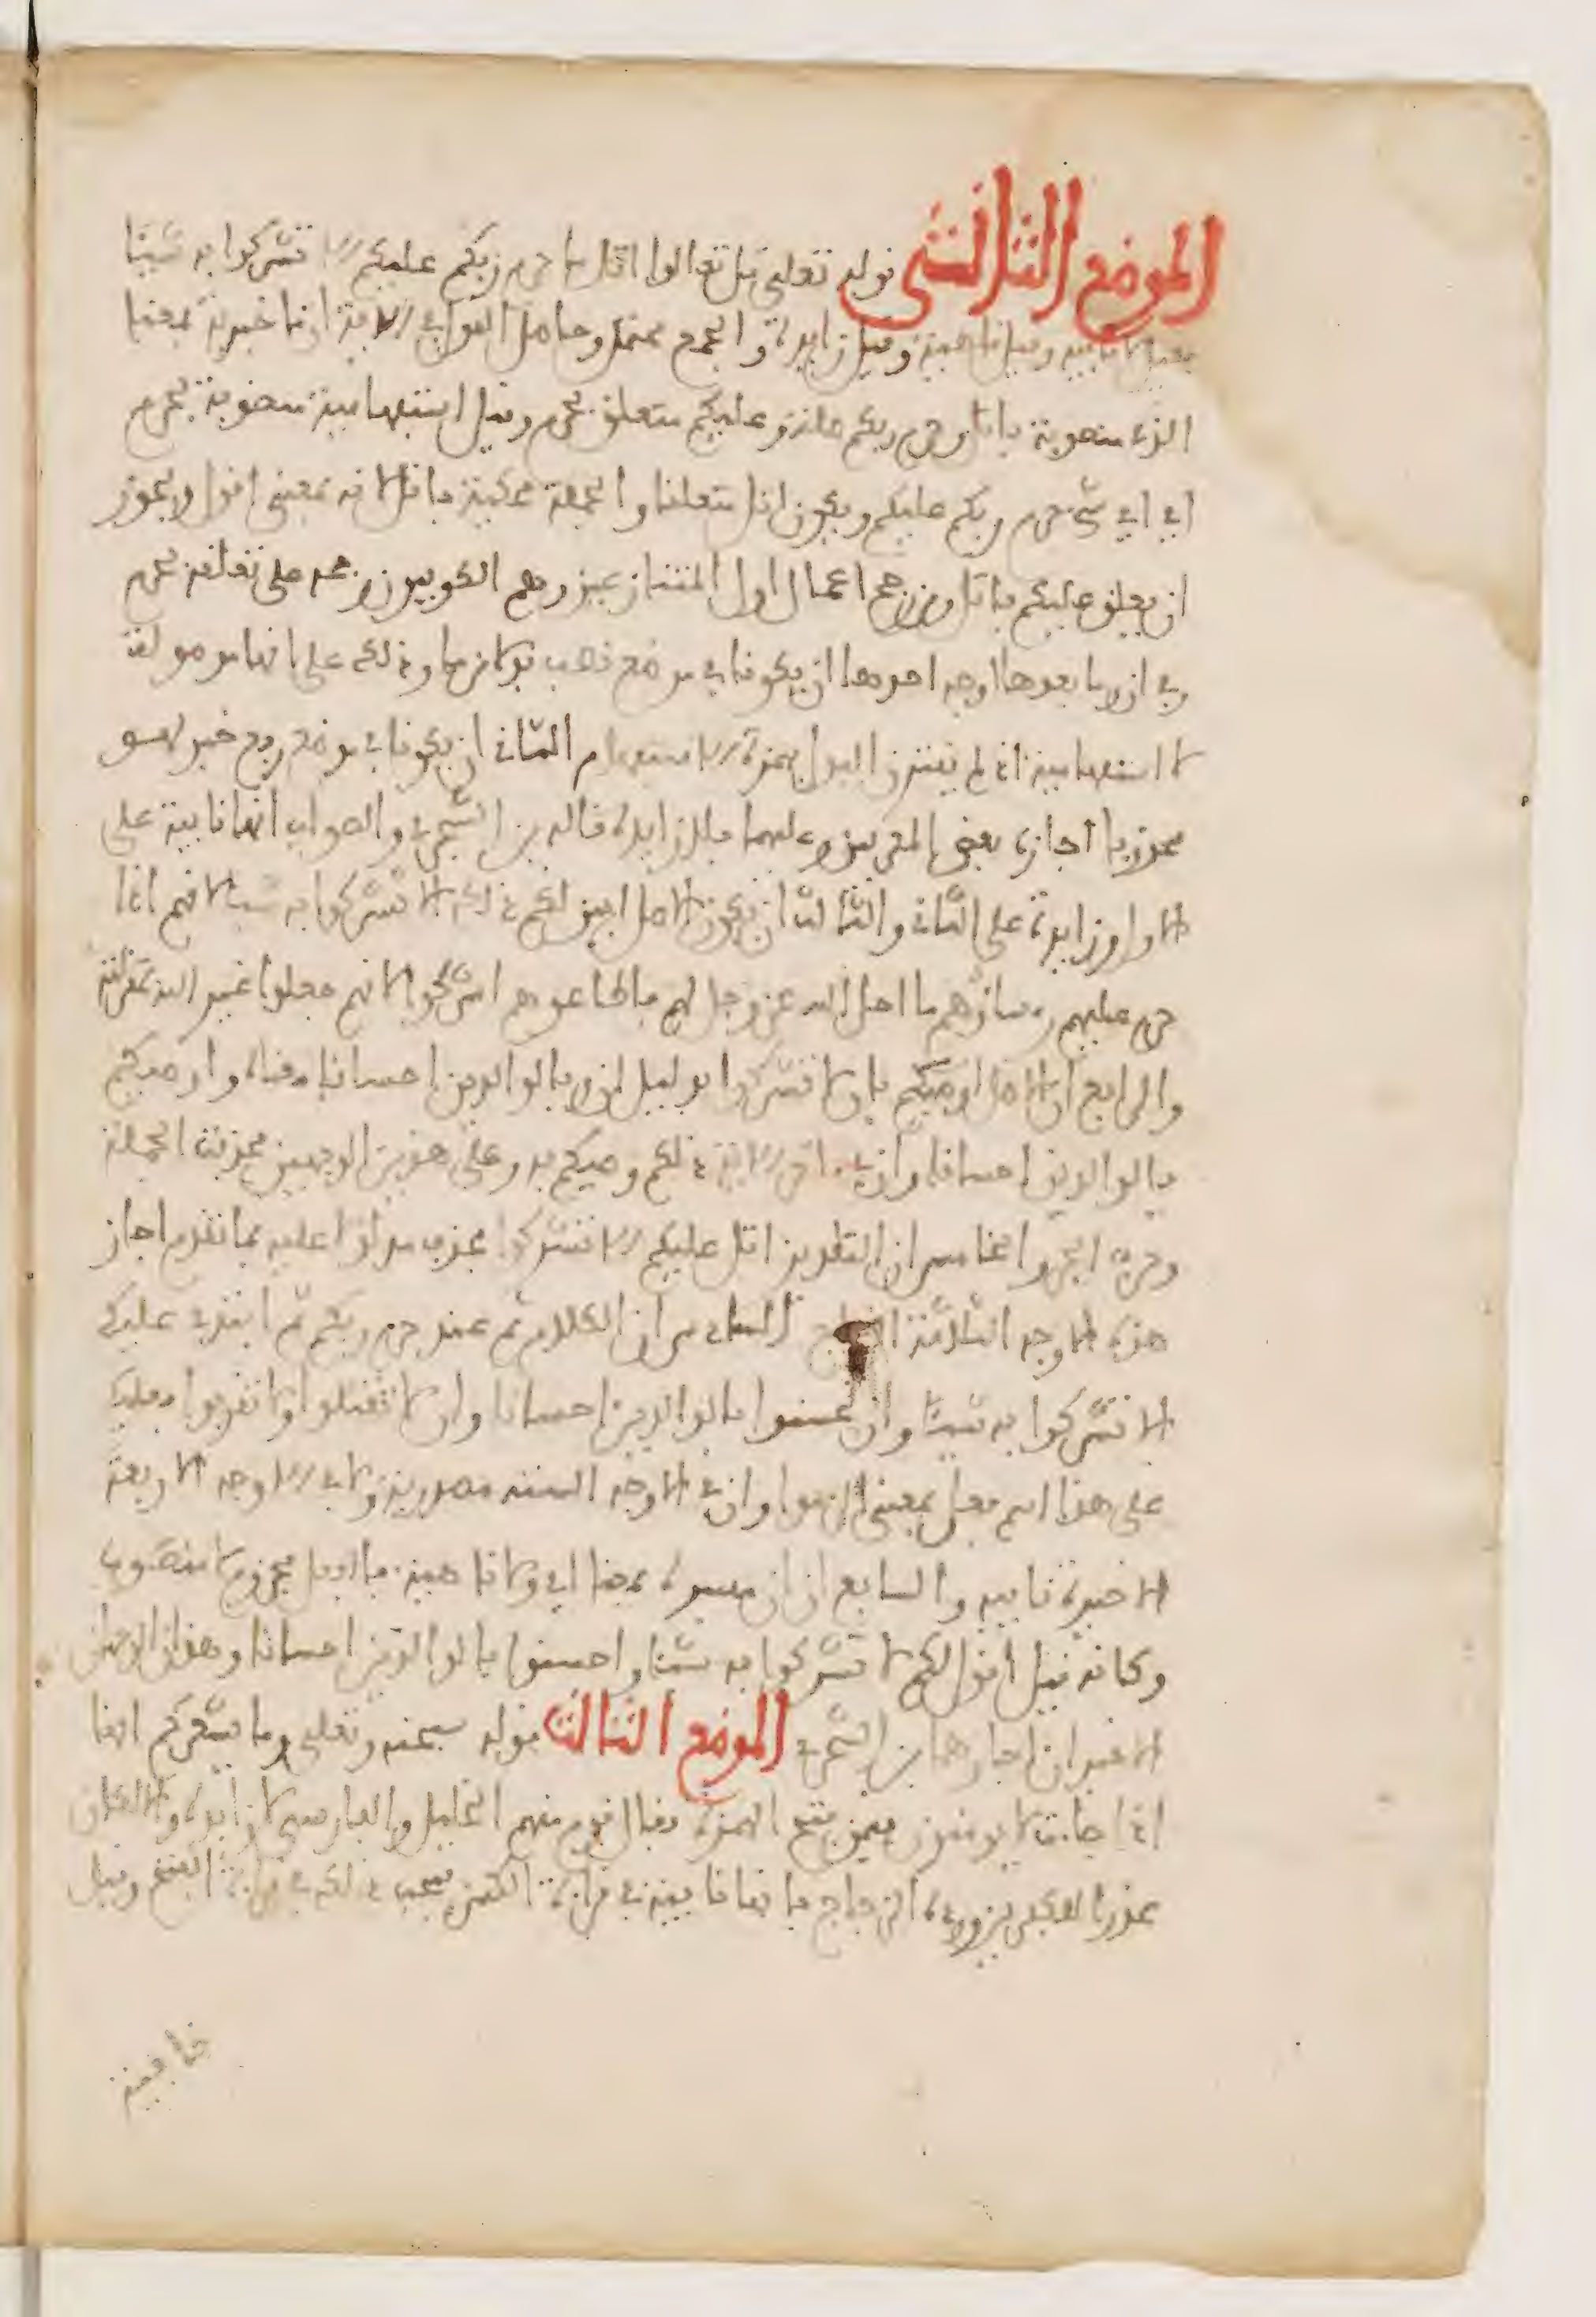 الموضع الثالثنى قوله تعلى قل تعالوا اتل ما حرم ربكم عليكم الا تشركوا به شيئا
فقيل لا نافية وقيل ناهية وقيل زايدة والجميع محتمل وحاصل القول في الاية ان ما خبرية بمعنا
الذي منصوبة باتل وحرم ربكم صلة وعليكم متعلق بحرم وقيل استفهامية منصوبة بحرم
اي اي شيء حرم ربكم عليكم ويكون اتل متعلقا والجملة محكية باتل لانه بمعنى اقول ويجوز
ان يعلق عليكم باتل ومن رجح اعمال اول المتنازعين وهم الكوفيون رجحه على تعلقه بحرم
وفي ان وما بعدها اوجه احدها ان يكونا في موضع نصب بدلا من ما وذلك على انها موصولة
لا استفهامية اذ لم يقترن البدل بهمزة الاستفهام الثاني ان يكونا في موضع رفع خبر لهو
محذوفا اجازه بعض المعربين وعليهما فلا زايدة قاله بن الشجري والصواب انها نافية على
الاول وزايدة على الثاني والثالث ان يكون الاصل ابين لكم ذلك الا تشركوا به شيا لانهم اذا
حرم عليهم رءساؤهم ما احل الله عز وجل لهم فاطاعوهم اشركوا لانهم جعلوا غير الله بمنزلته
والرابع ان الاصل اوصيكم بان لا تشركوا بدليل ان وبالوالدين احسانا معناه واوصيكم
بالوالدين احسانا وان في اخر الاية ذلكم وصيكم به وعلى هذين الوجهين فحذفت الجملة
وحرف الجر والخامس ان التقدير اتل عليكم الا تشركوا فحذف مدلولا عليه بما تقدم اجاز
هذه الاوجه الثلاثة الزجاج السادس ان الكلام تم عند حرم ربكم ثم ابتدي عليكم
الا تشركوا به شيئا وان تحسنوا بالوالدين احسانا وان لا تقتلوا ولا تقربوا فعليكم
على هذا اسم فعل بمعنى الزموا وان في الاوجه الستة مصدرية ولا في الاوجه الاربعة
الاخيرة نافية والسابع ان ان مفسرة بمعنا اي ولا ناهية فالفعل مجزوم لا منصوب
وكانه قيل اقول لكم لا تشركوا به شيئا واحسنوا بالوالدين احسانا وهذان الوجهان
الاخيران اجازهما بن الشجري الموضع الثالث قوله سبحنه وتعلى وما يشعركم انها
اذا جاءت لا يومنون فيمن فتح الهمزة فقال قوم منهم الخليل والفارسي لا زايدة والا لكان
عذرا للكفار ورده الزجاج بانها نافية في قراءة الكسر فيجب ذلك في قراءة الفتح وقيل
نافية